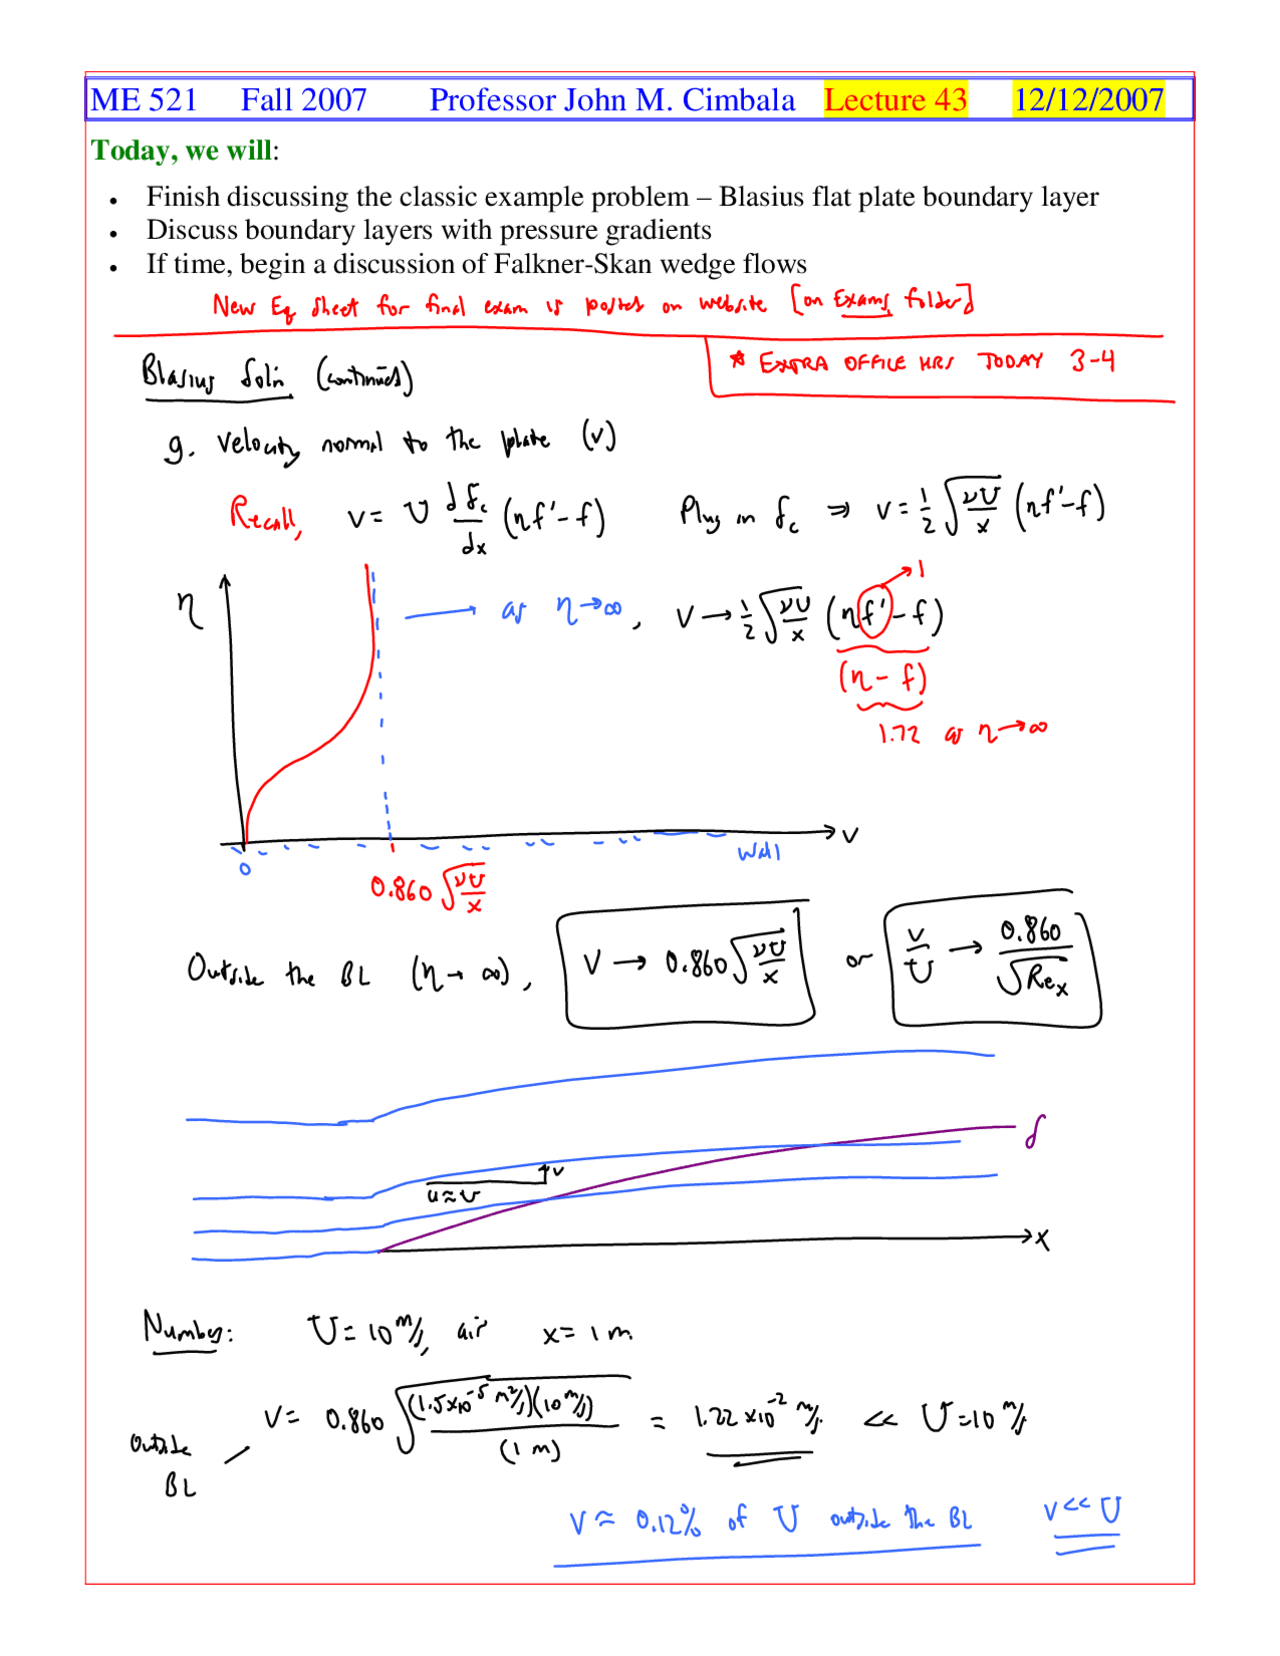 ME 521 Fall 2007 Professor John M. Cimbala Lecture 43 12/12/2007
Today, we will:
• Finish discussing the classic example problem – Blasius flat plate boundary layer
• Discuss boundary layers with pressure gradients
• If time, begin a discussion of Falkner-Skan wedge flows
New Eq sheet for final exam is posted on website [on Exams folder]
* EXTRA OFFICE HRS TODAY 3-4
Blasius Sol'n (continued)
g. Velocity normal to the plate (v)
Recall, v = U df_c/dx (ηf' - f) Plug in f_c ⇒ v = 1/2 √(νU/x) (ηf' - f)
η → as η→∞, v → 1/2 √(νU/x) (ηf' - f) → 1
(η - f)
1.72 as η→∞
v
0 Wall
0.860 √(νU/x)
Outside the BL (η→∞), v → 0.860 √(νU/x) or v/U → 0.860/√Re_x
δ
v
u≈U
x
Number: U = 10 m/s, air x = 1 m
Outside BL, v = 0.860 √((1.5x10^-5 m²/s)(10 m/s)/(1 m)) = 1.22 x10^-2 m/s. << U = 10 m/s
v ≈ 0.12% of U outside the BL v << U